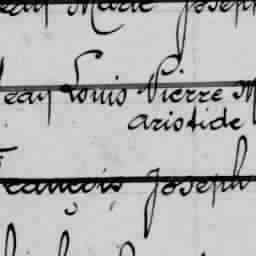 Jean Marie Joseph
Jean Louis Pierre M
aristide
François Joseph